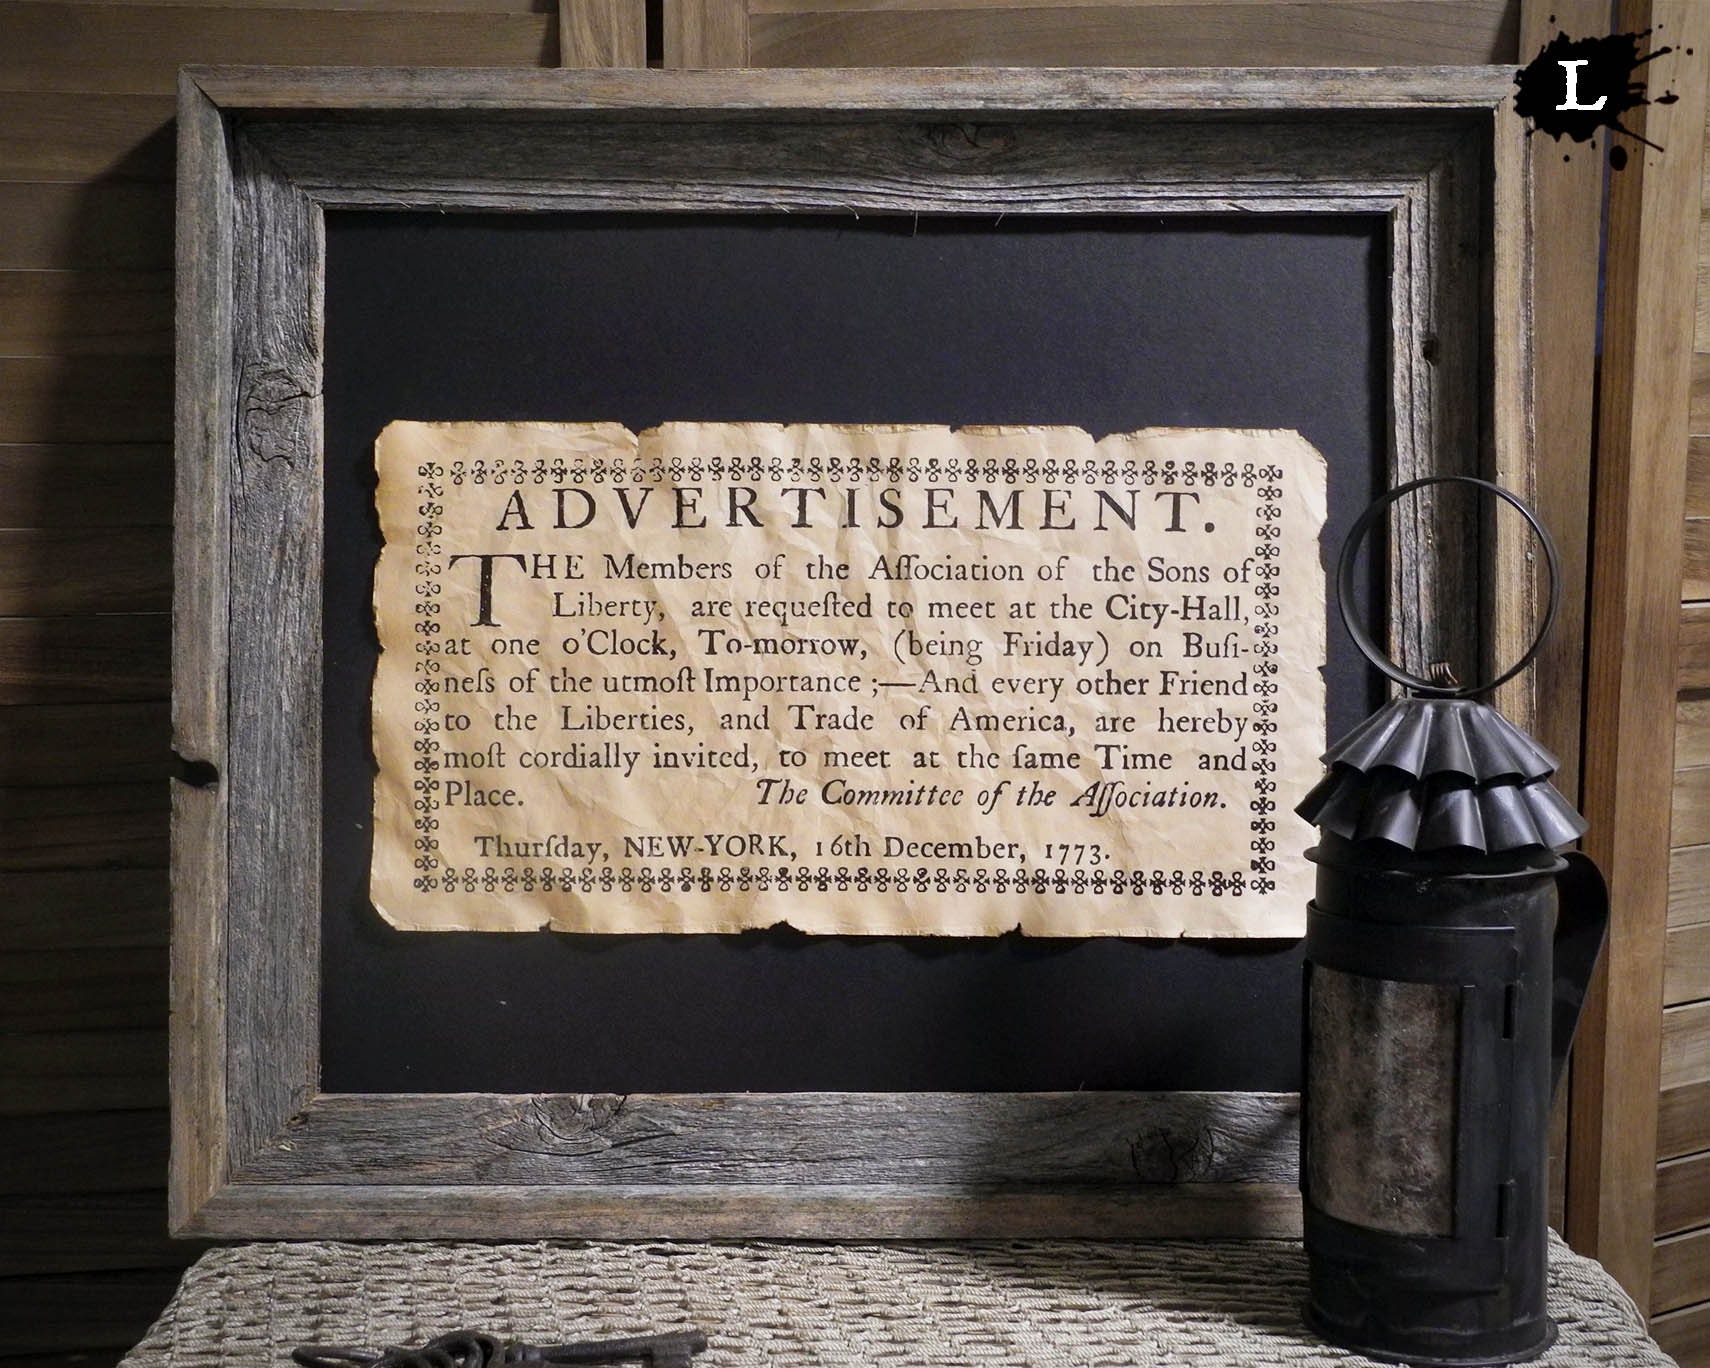 L
ADVERTISEMENT.
THE Members of the Aſſociation of the Sons of
Liberty, are requeſted to meet at the City-Hall,
at one o'Clock, To-morrow, (being Friday) on Buſi-
neſs of the utmoſt Importance ;—And every other Friend
to the Liberties, and Trade of America, are hereby
moſt cordially invited, to meet at the ſame Time and
Place. The Committee of the Aſſociation.
Thurſday, NEW-YORK, 16th December, 1773.